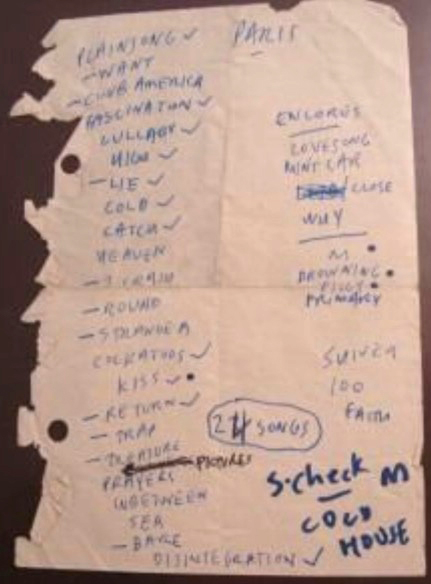 PLAINSONG ✓
PARIS
- WANT
- CLUB AMERICA
FASCINATION ✓
LULLABY ✓
HIGH ✓
- LIE ✓
COLD ✓
CATCH ✓
HEAVEN
- ROUND
- STRANGE A
COCKATOOS ✓
KISS ✓ •
- RETURN ✓
- TRAP
- TREASURE
PICTURES
PRAYERS
INBETWEEN
SEA
- BARE
DISINTEGRATION ✓
ENCORES
LOVESONG
MINT CAR
CLOSE
WHY
M •
DROWNING •
PIGGY •
PRIMARY
100
FAITH
24 SONGS
S.check M
COLD
HOUSE